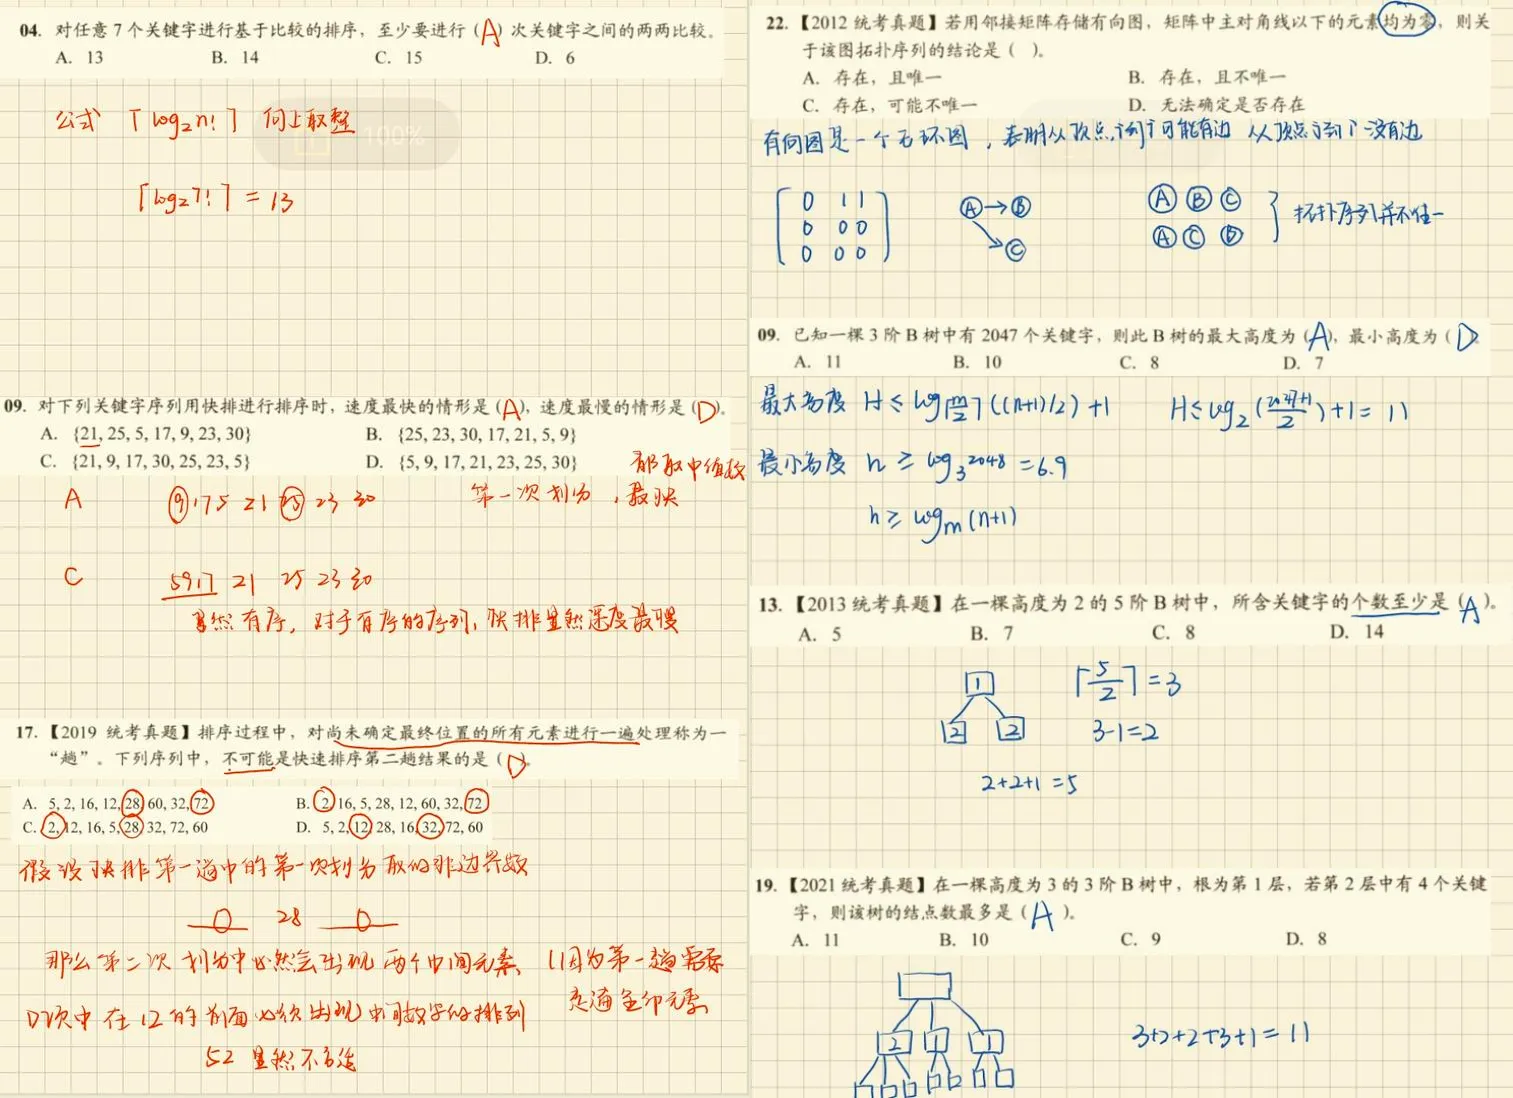 04. 对任意 7 个关键字进行基于比较的排序，至少要进行（A）次关键字之间的两两比较。
A. 13 B. 14 C. 15 D. 6
公式 ⌈log₂n!⌉ 向上取整
100%
⌈log₂7!⌉ = 13
09. 对下列关键字序列用快排进行排序时，速度最快的情形是（A），速度最慢的情形是（D）。
A. {21, 25, 5, 17, 9, 23, 30} B. {25, 23, 30, 17, 21, 5, 9}
C. {21, 9, 17, 30, 25, 23, 5} D. {5, 9, 17, 21, 23, 25, 30}
都取中值数
第一次划分，最快
A 9 17 5 21 25 23 30
C 5 9 17 21 25 23 30
显然有序，对于有序的序列，快排显然深度最慢
17.【2019 统考真题】排序过程中，对尚未确定最终位置的所有元素进行一遍处理称为一
“趟”。下列序列中，不可能是快速排序第二趟结果的是（D）。
A. 5, 2, 16, 12, 28, 60, 32, 72 B. 2, 16, 5, 28, 12, 60, 32, 72
C. 2, 12, 16, 5, 28, 32, 72, 60 D. 5, 2, 12, 28, 16, 32, 72, 60
假设快排第一趟中的第一次划分取的非边界数
28
那么第二次划分中必然会出现两个中间元素 (因为第一趟需要
遍全部元素
D项中在12的前面必须出现中间数字的排列
52 显然不
22.【2012 统考真题】若用邻接矩阵存储有向图，矩阵中主对角线以下的元素均为零，则关
于该图拓扑序列的结论是（ ）。
A. 存在，且唯一 B. 存在，且不唯一
C. 存在，可能不唯一 D. 无法确定是否存在
有向图是一个无环图，表明从顶点i到j可能有边 从顶点j到i没有边
0 1 1 A→B A B C
0 0 0 C A C B 拓扑序列并不唯一
0 0 0
09. 已知一棵 3 阶 B 树中有 2047 个关键字，则此 B 树的最大高度为（A），最小高度为（D
A. 11 B. 10 C. 8 D. 7
最大高度 H ≤ log⌈m/2⌉((n+1)/2)+1 H ≤ log₂((2047+1)/2)+1 = 11
最小高度 h ≥ log₃2048 = 6.9
h ≥ logₘ(n+1)
13.【2013 统考真题】在一棵高度为 2 的 5 阶 B 树中，所含关键字的个数至少是（A）。
A. 5 B. 7 C. 8 D. 14
1 ⌈5/2⌉ = 3
2 2 3-1=2
2+2+1 =5
19.【2021 统考真题】在一棵高度为 3 的 3 阶 B 树中，根为第 1 层，若第 2 层中有 4 个关键
字，则该树的结点数最多是（A）。
A. 11 B. 10 C. 9 D. 8
2 1 1 3+2+2+3+1 = 11